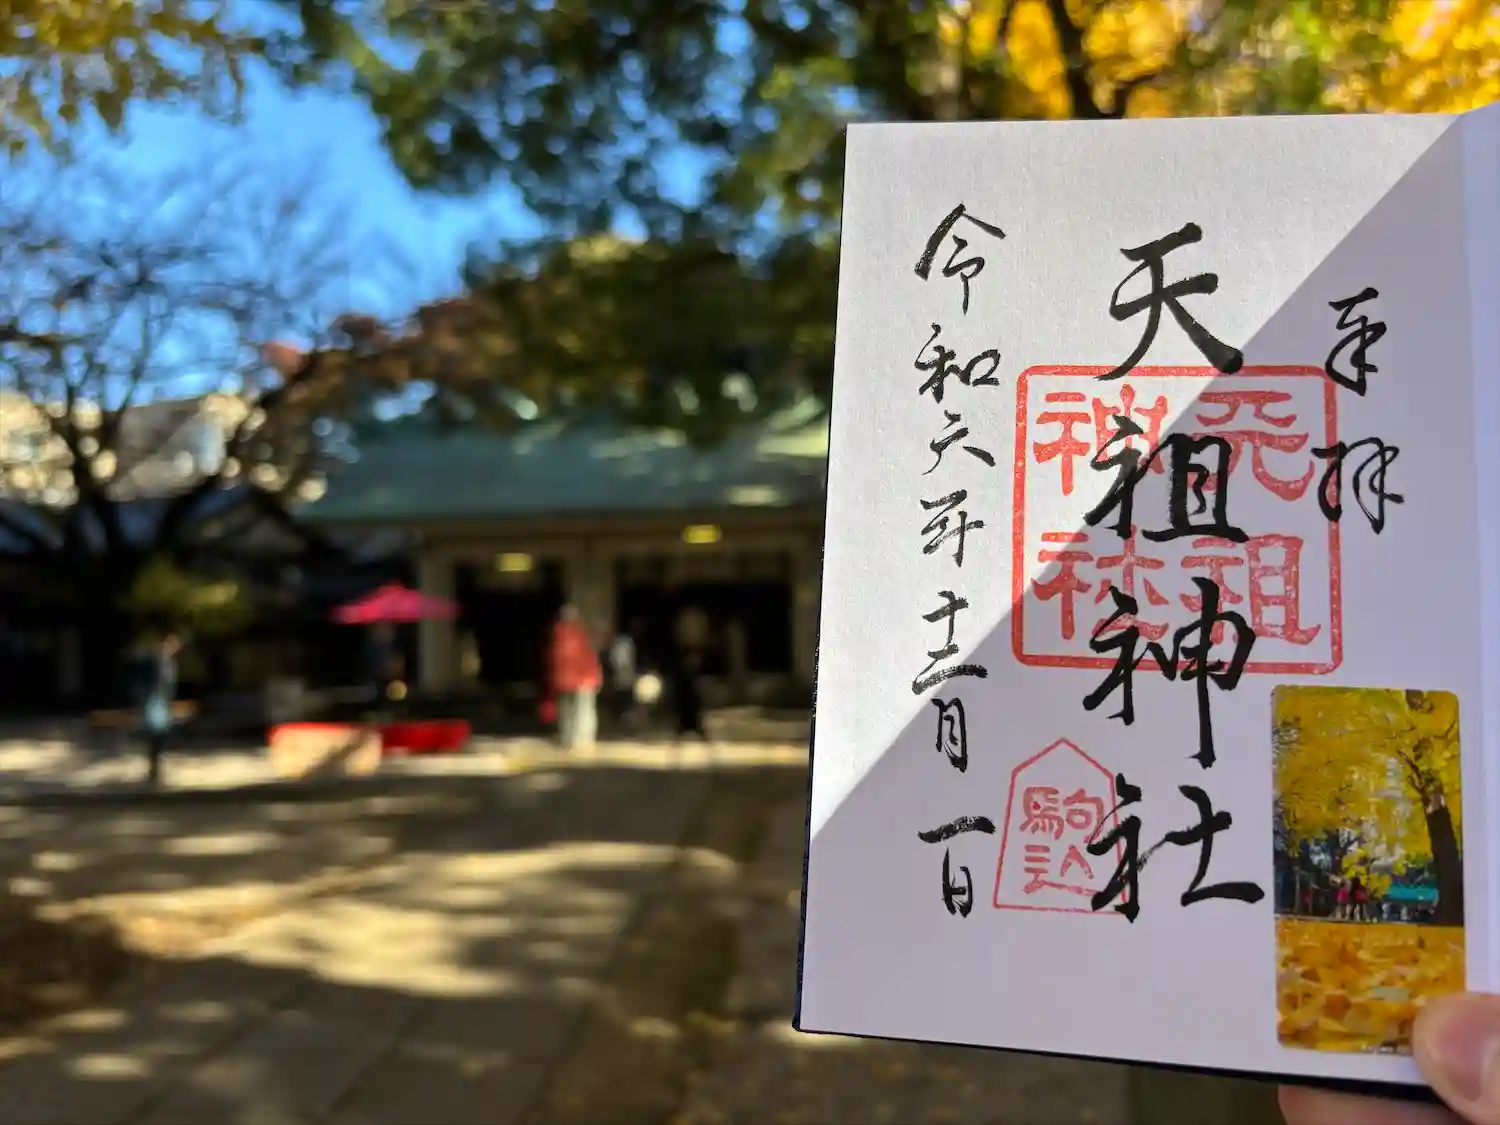 奉拝
天祖神社
天祖
神社
駒込
令和六年十二月一日